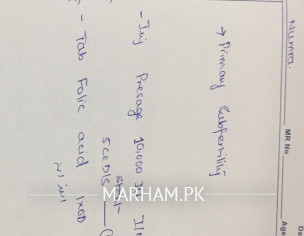 Numra.
MR No
Da
Age
→ Primary Subfertility
- Inj Presage 10,000 I
stat
- Tab Folic acid 1xOD
MARHAM.PK